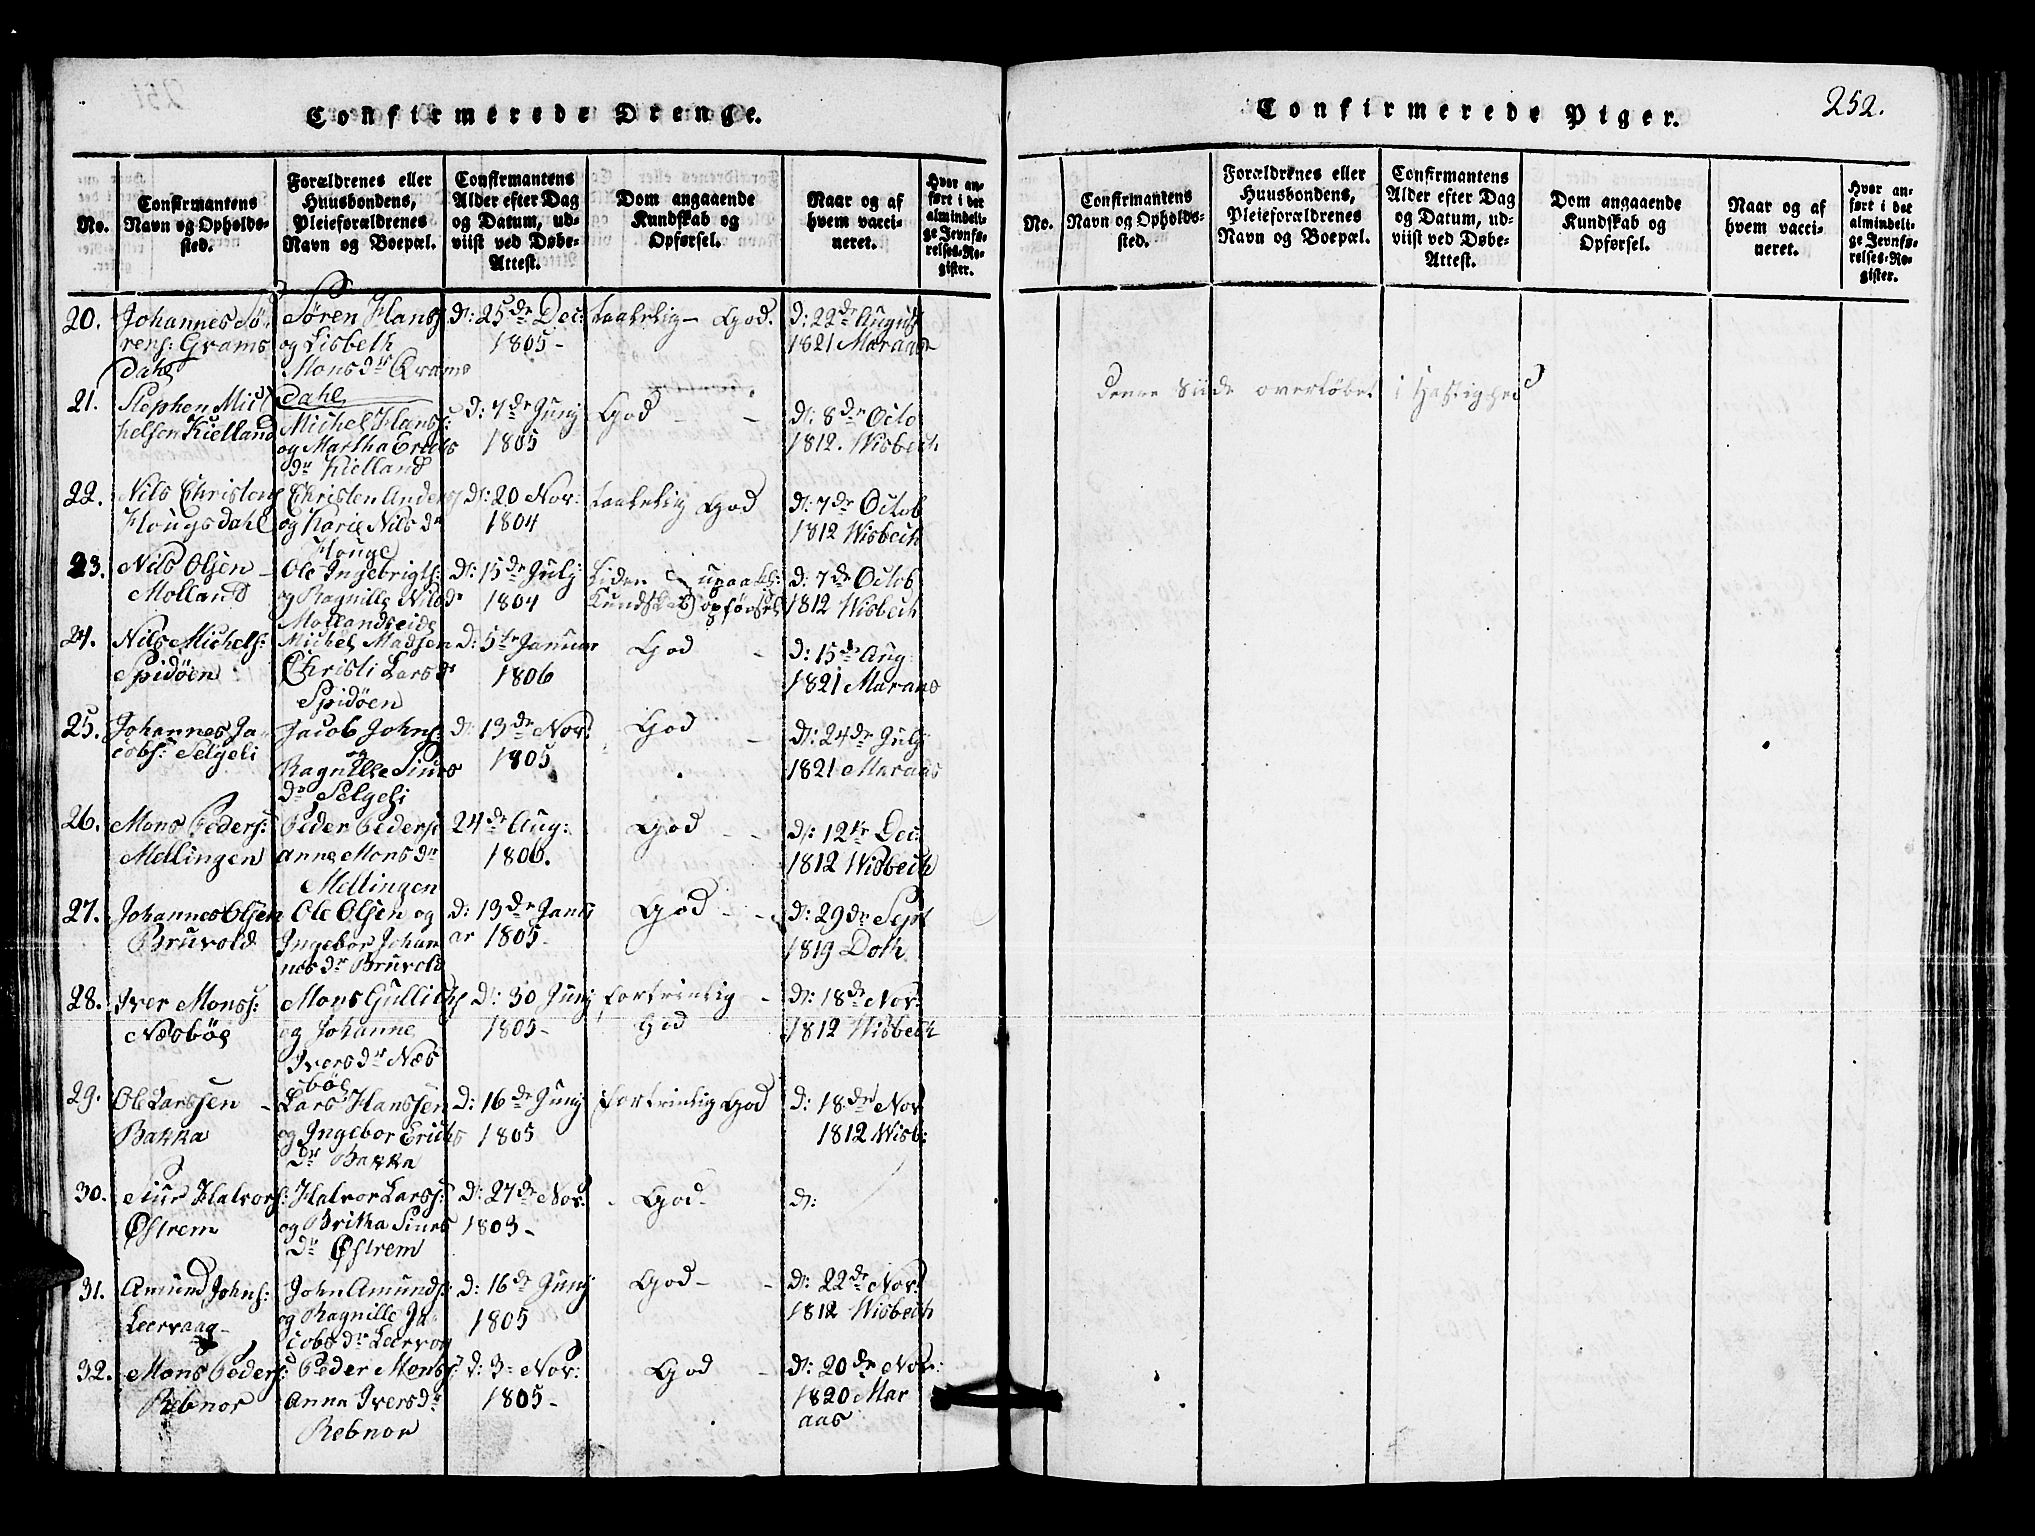 Confirmerede Drenge.
No.
Confirmantens
Navn og Opholds-
sted.
Forældrenes eller
Huusbondens,
Pleieforældrenes
Navn og Boepæl.
Confirmantens
Alder efter Dag
og Datum, ud-
viist ved Døbe-
Attest.
Dom angaaende
Kundskab og
Opførsel.
Naar og af
hvem vacci-
neret.
Hvor an-
ført i det
almindeli-
ge Jevnfø-
relses-Re-
gister.
20.
Johannes Sø-
rens: Grams
dahl
Søren Hans
og Lisbeth
Monsdr Grams
dahl
d: 25de Dec:
1805-
taalelig- God.
d: 22de August
1821 Maraas
21.
Stephen Mic
helsen Kielland
Michel Hans:
og Martha Erichs
dr Kielland
d: 7de Junj
1805
God
d: 8de Octo
1812. Wisbech
22.
Nils Christens
Hougsdahl
Christen Anders
og Karie Nilsdr
Houge
d: 20 Nov:
1804
taalelig God
d: 7de Octob
1812 Wisbech
23.
Nils Olsen
Molland
Ole Ingebrigts:
og Ragnille Nilsdr
Mollandseide
d: 15de Julj
1804
Liden
Kundskab opførsel
d: 7de Octob
1812 Wisbech
24.
Nils Michels:
Spidøen
Michel Madsen
Christi Larsdr
Spidøen
d: 5te Januar
1806
God
d: 15de Aug
1821 Maraas
25.
Johannes Ja
cobs: Selgeli
Jacob Johns
og
Ragnille Siurs
dr Selgeli
d: 13de Nov:
1805
God
d: 24de Julj
1821 Maraas
26.
Mons Peders:
Mellingen
Peder Peders
Anne Monsdr
Mellingen
24de Aug:
1806.
God
d: 12te Dec:
1812 Wisbech
27.
Johannes Olsen
Bruvold
Ole Olsen og
Ingebor Johan
nesdr Bruvold
d: 13de Janu
ar 1805-
God
d: 29de Sept
1819 Doth
28.
Iver Mons:
Næsböe
Mons Gullichs
og Johanne
Iversdr Næs
böe
d: 30 Junj
1805-
fortrinlig
God
d: 18de Nov:
1812 Wisbech
29.
Ole Larssen
Bakka
Lars Hanssen
og Ingebor Erichs
dr Bakka
d: 16de Junj
1805
fortrinlig God
d: 18de Nov
1812 Wisb:
30.
Siur Halvors:
Østrem
Halvor Larss:
og Britha Siurs
dr Østrem
d: 27de Nov:
1803-
God
d:
31.
Amund Johns:
Leervaag
John Amunds:
og Ragnille Ja
cobsdr Leervog
d: 16de Junj
1805
God
d: 22de Nov
1812 Wisbech
32.
Mons Peders:
Rebnor
Peder Monss
Anna Iversdr
Rebnor
d: 3= Nov:
1805-
God
d: 20de Nov:
1820 Mar
aas
Confirmerede Piger.
252.
No.
Confirmantens
Navn og Opholds-
sted.
Forældrenes eller
Huusbondens,
Pleieforældrenes
Navn og Boepæl.
Confirmantens
Alder efter Dag
og Datum, ud-
viist ved Døbe-
Attest.
Dom angaaende
Kundskab og
Opførsel.
Naar og af
hvem vacci-
neret.
Hvor an-
ført i det
almindeli-
ge Jevnfø-
relses-Re-
gister.
Denne Siide overløbet i Hastighed